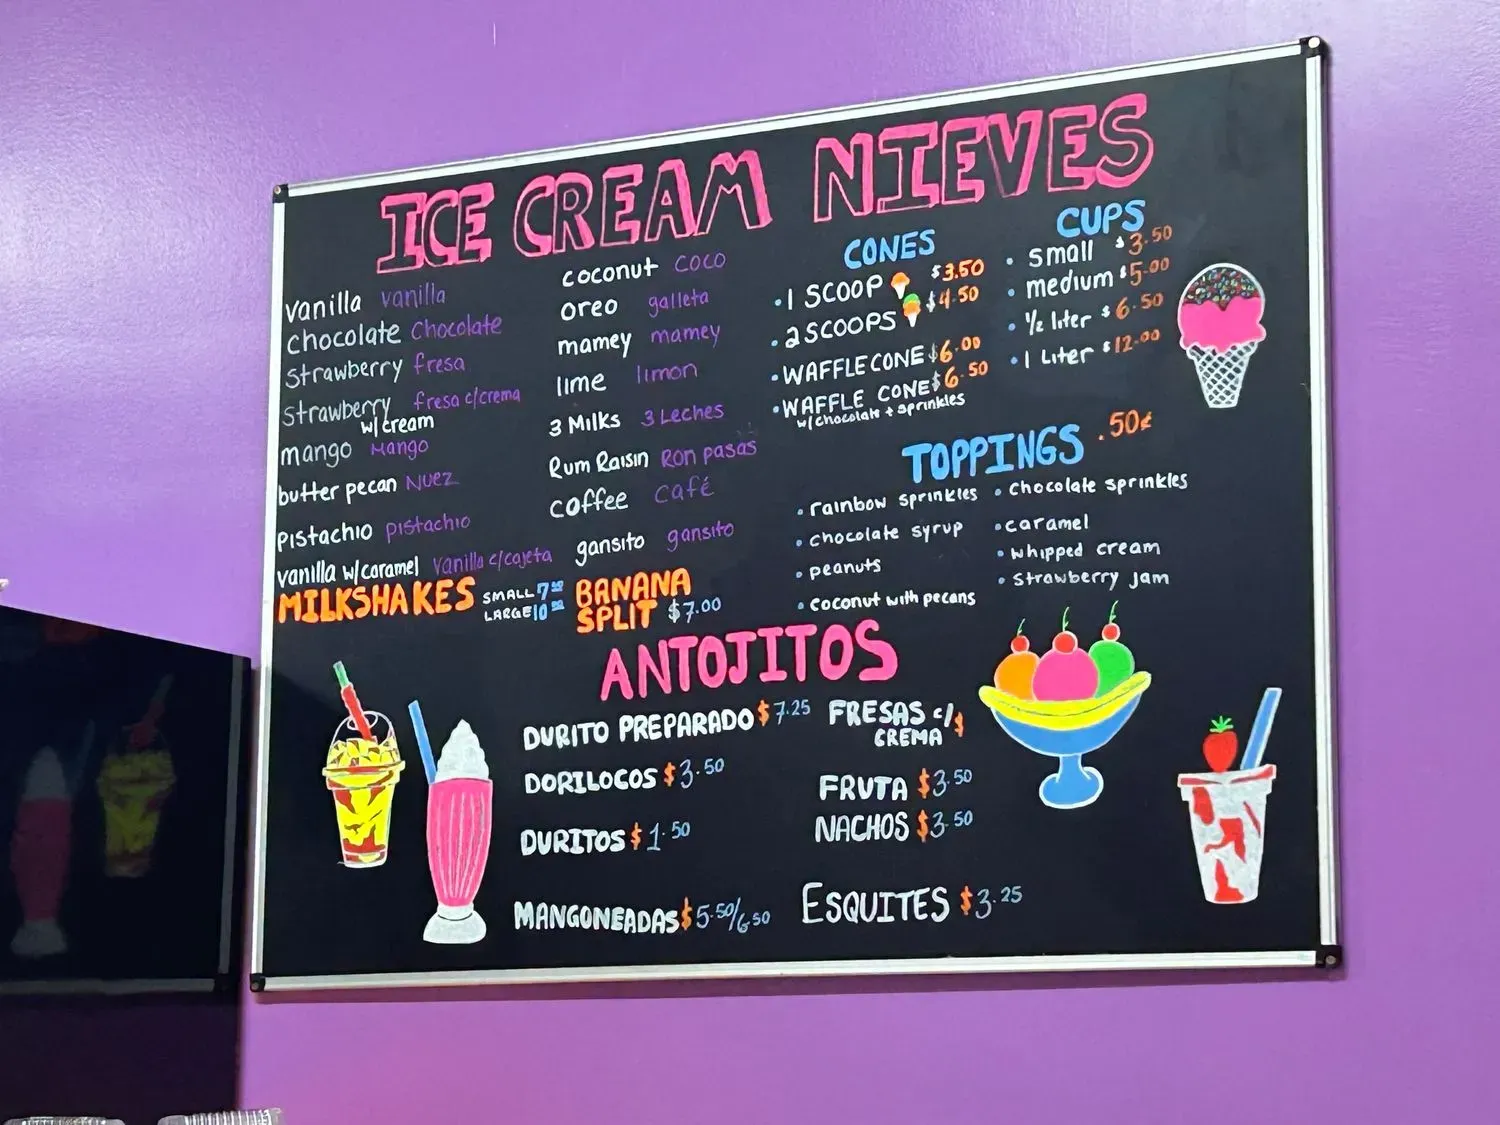 ICE CREAM NIEVES
vanilla vanilla
chocolate chocolate
strawberry fresa
strawberry fresa c/crema
w/cream
mango Mango
butter pecan NUEZ
pistachio pistachio
vanilla w/caramel vanilla c/cajeta
coconut coco
oreo galleta
mamey mamey
lime limon
3 Milks 3 Leches
Rum Raisin Ron pasas
coffee café
gansito gansito
CONES
• 1 SCOOP $3.50
• 2 SCOOPS $4.50
• WAFFLE CONE $6.00
• WAFFLE CONE $6.50
w/chocolate + sprinkles
CUPS
• small $3.50
• medium $5.00
• 1/2 liter $6.50
• 1 Liter $12.00
TOPPINGS .50¢
• rainbow sprinkles
• chocolate syrup
• peanuts
• coconut with pecans
• chocolate sprinkles
• caramel
• whipped cream
• strawberry jam
MILKSHAKES
SMALL 7
LARGE 10
BANANA
SPLIT $7.00
ANTOJITOS
DURITO PREPARADO $7.25
DORILOCOS $3.50
DURITOS $1.50
MANGONEADAS $5.50/6.50
FRESAS c/ $
CREMA
FRUTA $3.50
NACHOS $3.50
ESQUITES $3.25